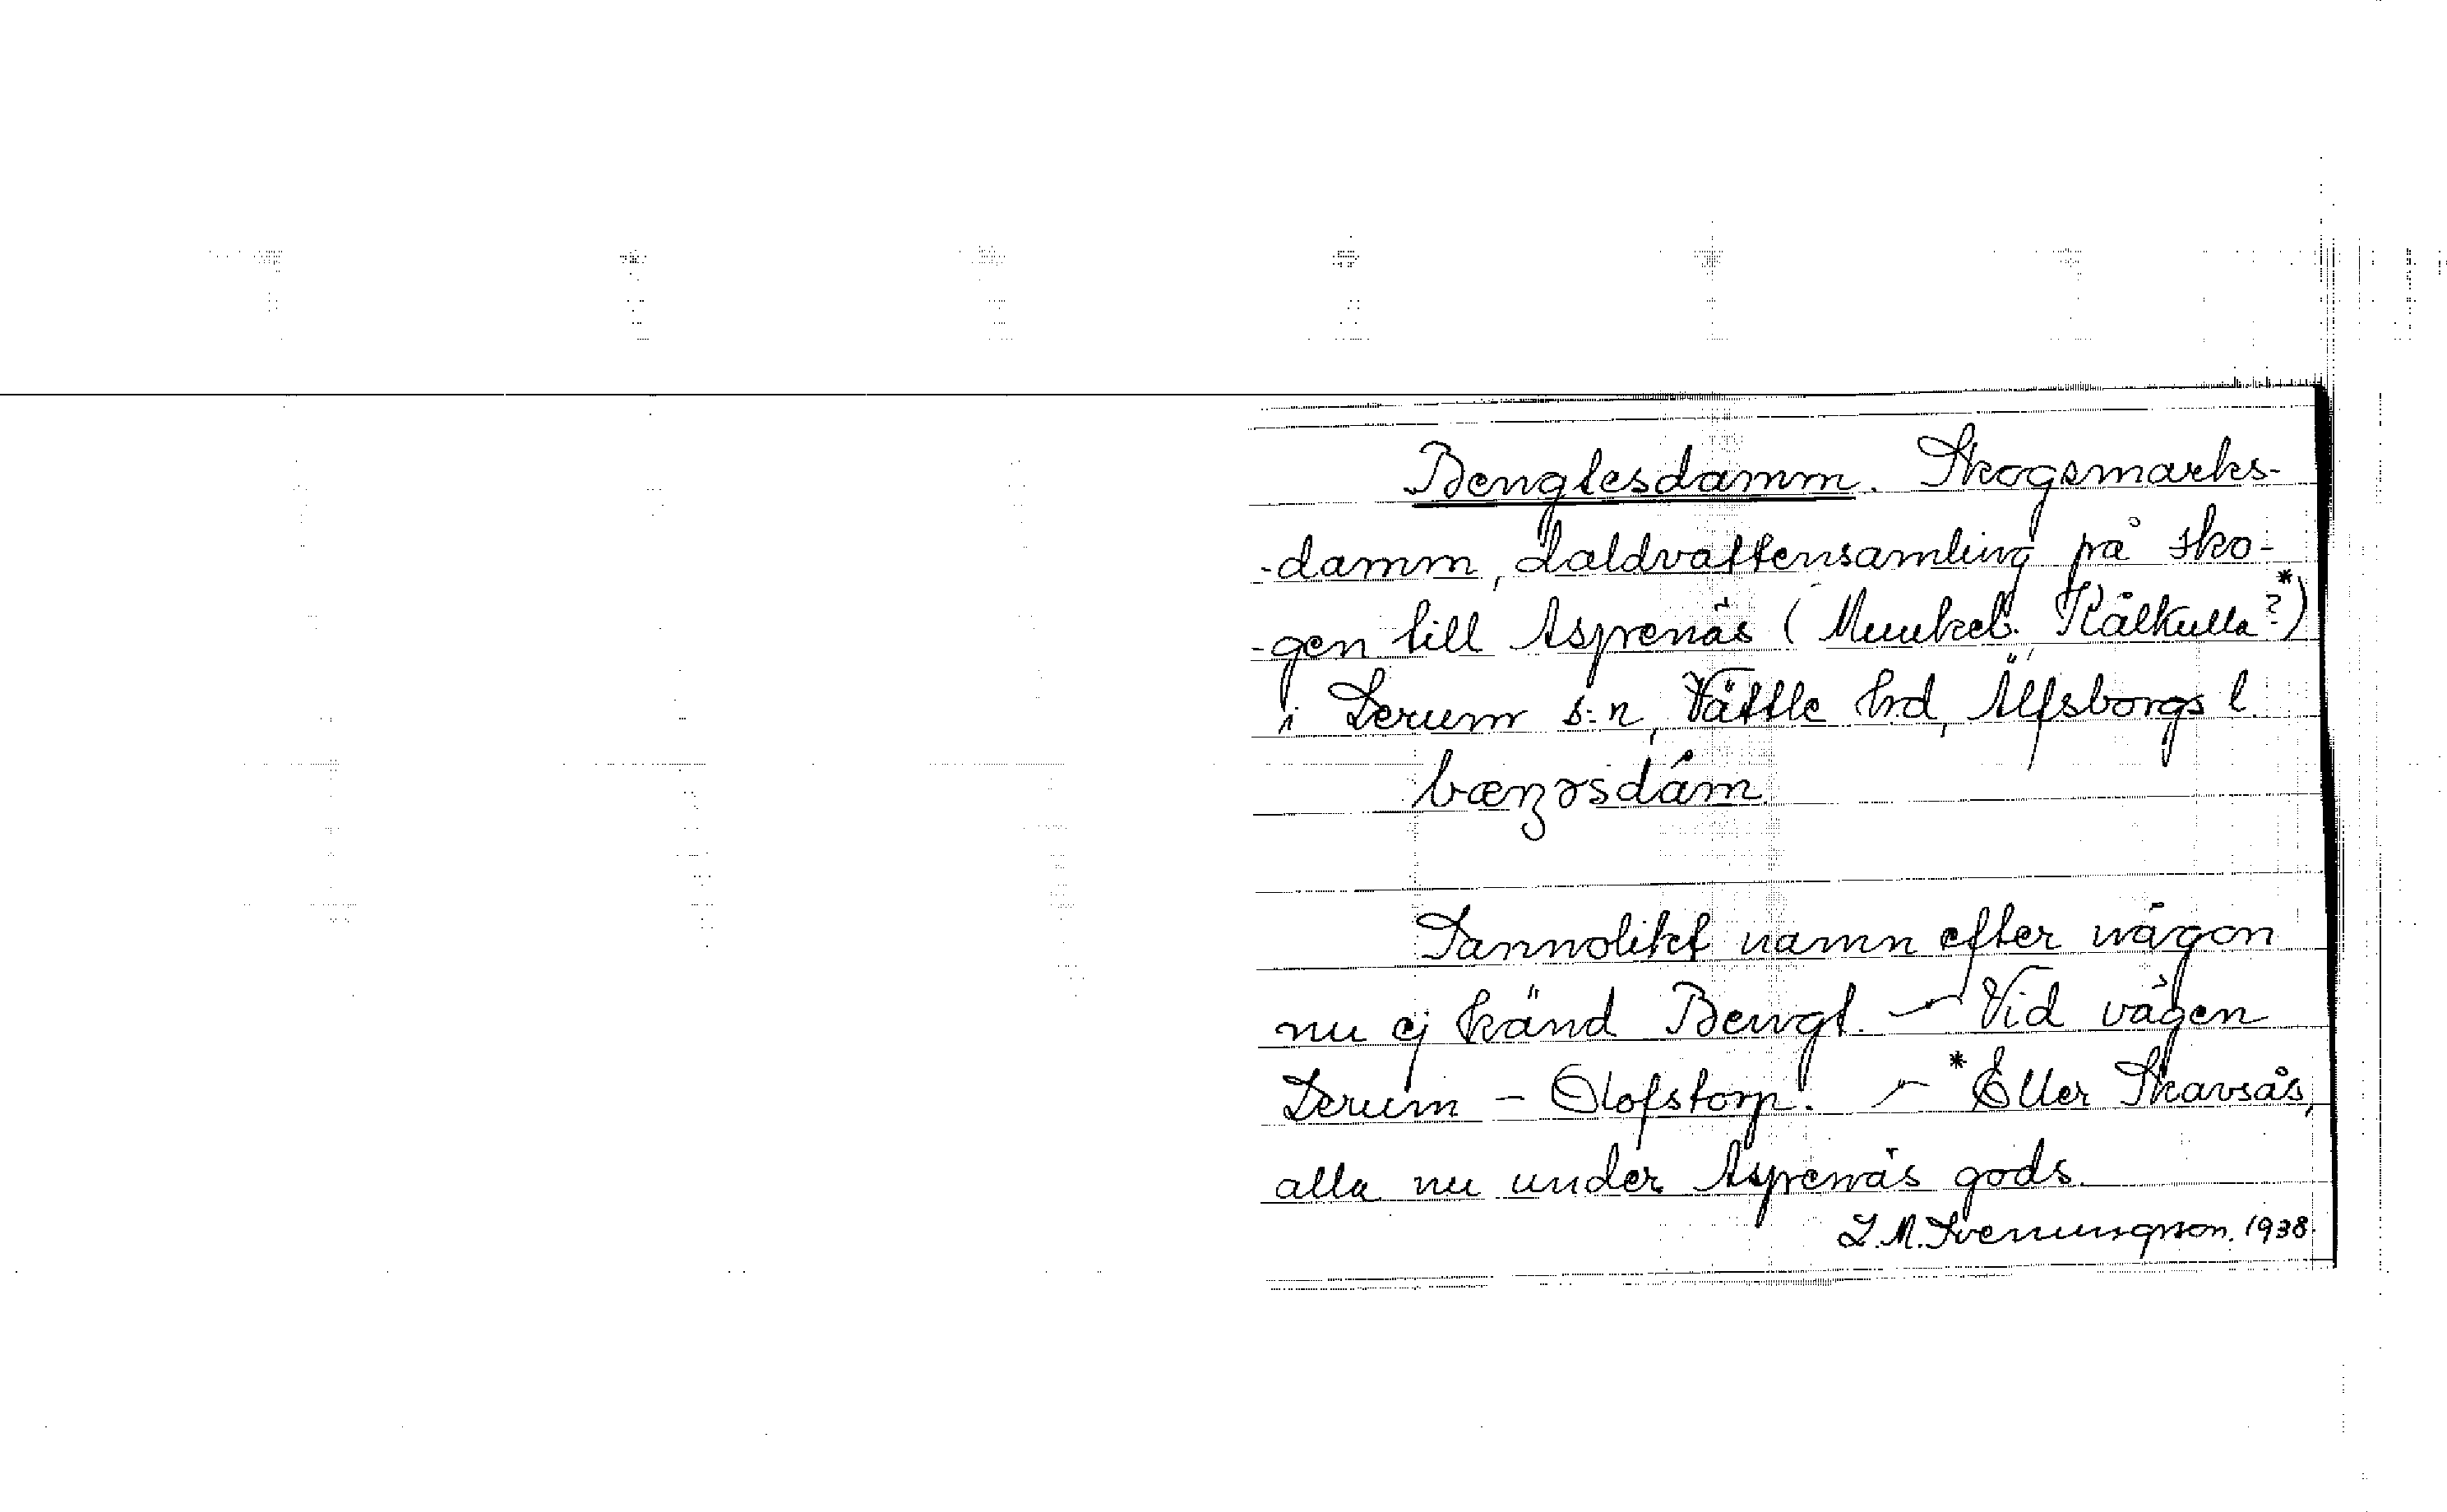 Bengtesdamm. Skogsmarks-
-damm, daldvattensamling på sko-
-gen till Asprenäs (Munkeb. Kålkulla?*)
i Lerum s:n, Vättle hrd, Älfsborgs l.
Sannolikt namn efter någon
nu ej känd Bengt. — Vid vägen
Lerum - Olofstorp. — *Eller Skavsås,
alla nu under Asprenäs gods.
1938.